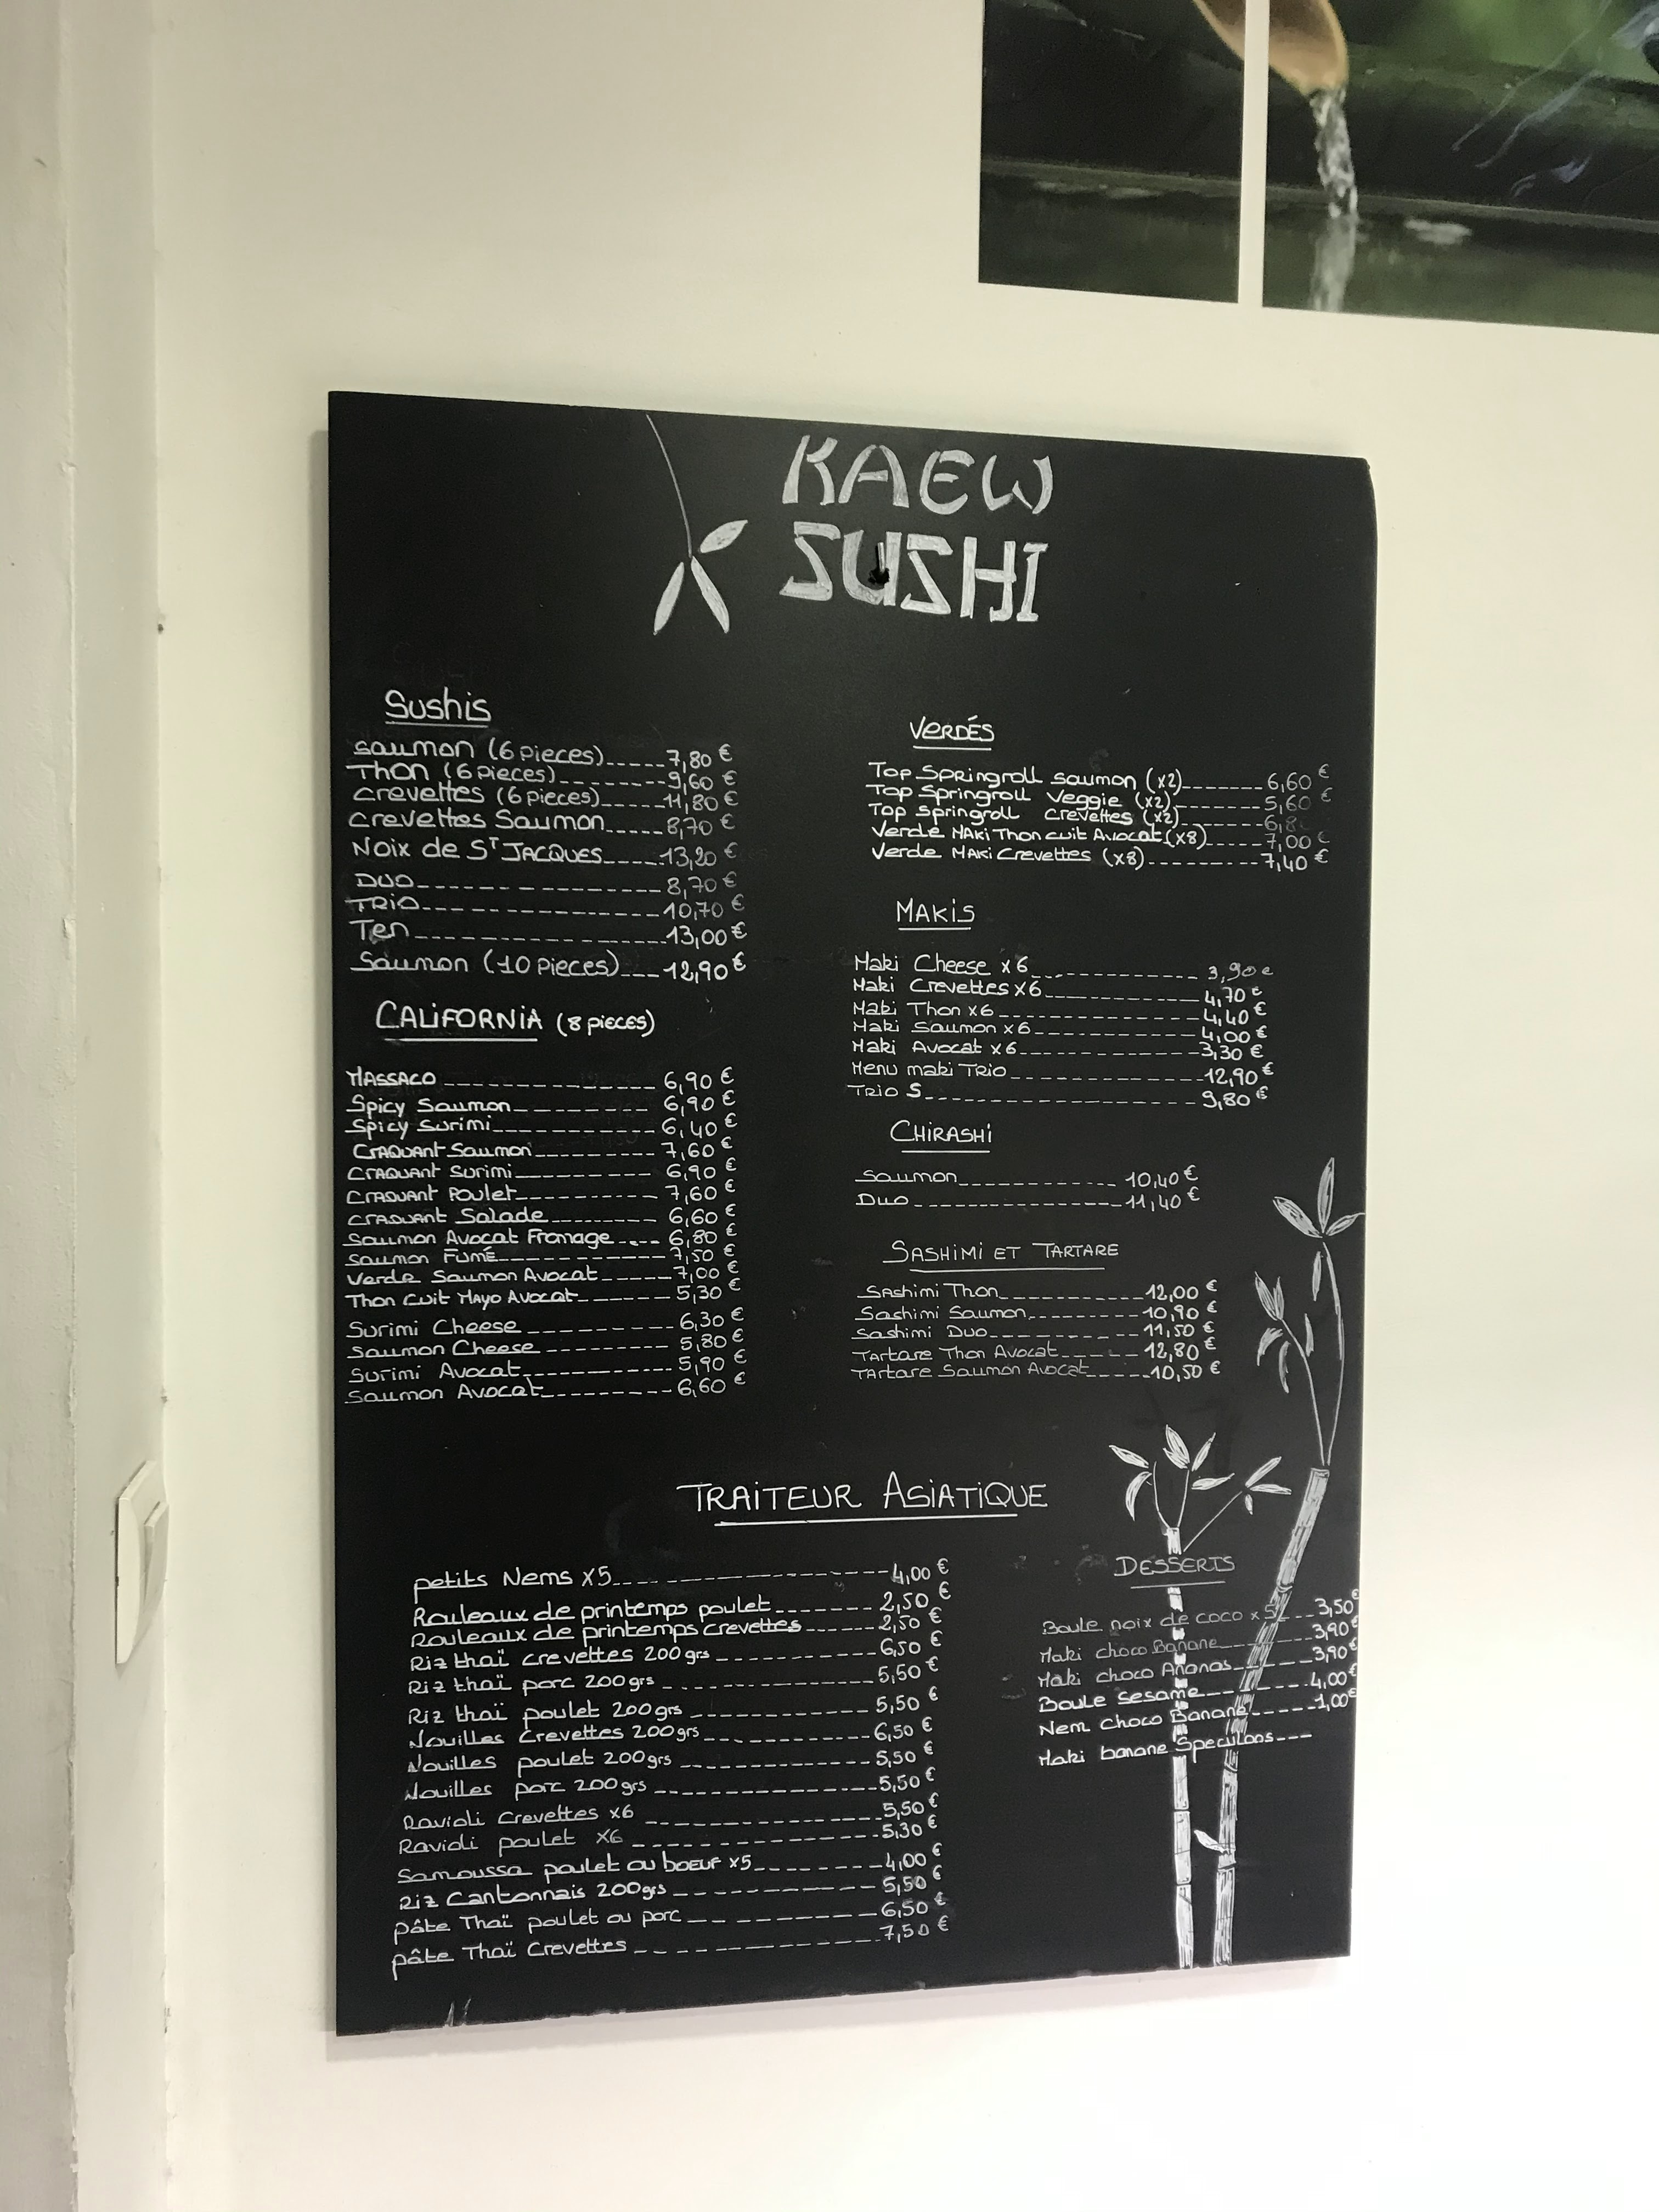 KAEW
SUSHI
Sushis
saumon (6 pieces) 7,80 €
Thon (6 pieces) 9,60 €
crevettes (6 pieces) 11,80 €
crevettes Saumon 8,70 €
Noix de St JACQUES 13,20 €
DUO 8,70 €
TRIO 10,70 €
Ten 13,00 €
Saumon (10 pieces) 12,90 €
CALIFORNIA (8 pieces)
MASSACO 6,90 €
Spicy Saumon 6,90 €
Spicy Surimi 6,40 €
CRAQUANT Saumon 7,60 €
CRAQUANT Surimi 6,90 €
CRAQUANT Poulet 7,60 €
CRAQUANT Salade 6,60 €
Saumon Avocat Fromage 6,80 €
Saumon Fumé 7,50 €
Verde Saumon Avocat 7,00 €
Thon cuit Mayo Avocat 5,30 €
Surimi Cheese 6,30 €
Saumon Cheese 5,80 €
Surimi Avocat 5,90 €
Saumon Avocat 6,60 €
VERDÉS
Top Springroll saumon (x2) 6,60 €
Top Springroll Veggie (x2) 5,60 €
Top springroll crevettes (x2) 6,8
Verde Maki Thon cuit Avocat (x8) 7,00 €
Verde Maki Crevettes (x8) 7,40 €
MAKIS
Maki Cheese x6 3,90 €
Maki Crevettes x6 4,70 €
Maki Thon x6 4,40 €
Maki Saumon x6 4,00 €
Maki Avocat x6 3,30 €
Menu maki Trio 12,90 €
TRIO S 9,80 €
CHIRASHI
Saumon 10,40 €
Duo 11,40 €
SASHIMI ET TARTARE
Sashimi Thon 12,00 €
Sashimi Saumon 10,90 €
Sashimi Duo 11,50 €
Tartare Thon Avocat 12,80 €
Tartare Saumon Avocat 10,50 €
TRAITEUR ASIATIQUE
petits Nems x5 4,00 €
Rouleaux de printemps poulet 2,50 €
Rouleaux de printemps crevettes 2,50 €
Riz thaï crevettes 200grs 6,50 €
Riz thaï porc 200grs 5,50 €
Riz thaï poulet 200grs 5,50 €
Nouilles Crevettes 200grs 6,50 €
Nouilles poulet 200grs 5,50 €
Nouilles porc 200grs 5,50 €
Ravioli Crevettes x6 5,50 €
Ravioli poulet x6 5,30 €
Samoussa poulet ou boeuf x5 4,00 €
Riz Cantonnais 200grs 5,50 €
pâte Thaï poulet ou porc 6,50 €
pâte Thaï Crevettes 7,50 €
DESSERTS
Boule noix de coco x5 3,50 €
Maki choco Banane 3,90 €
Maki choco Ananas 3,90 €
Boule sesame 4,00 €
Nem choco Banane 1,00 €
Maki banane Speculoos